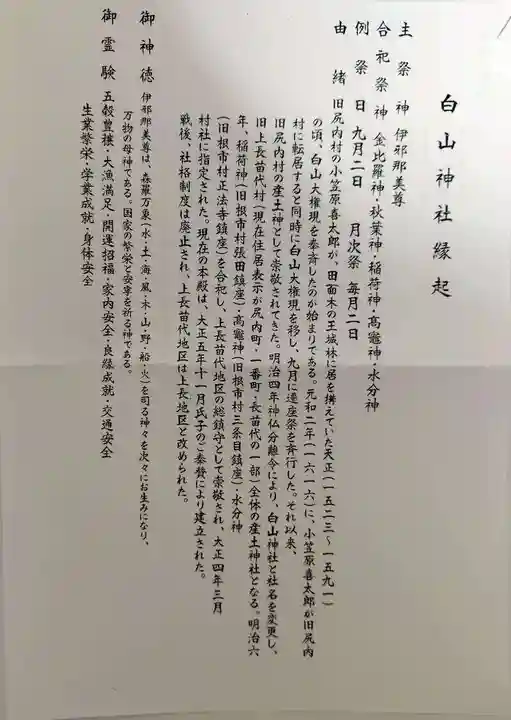 白山神社縁起
主祭神 伊邪那美尊
合祀祭神 金比羅神・秋葉神・稲荷神・高龗神・水分神
例祭日 九月二日 月次祭 毎月二日
由緒 旧尻内村の小笠原喜太郎が、田面木の王城林に居を構えていた天正(一五二三～一五九一)
の頃、白山大権現を奉斉したのが始まりである。元和二年(一六一六)に、小笠原喜太郎が旧尻内
村に転居すると同時に白山大権現を移し、九月に遷座祭を斉行した。それ以来、
旧尻内村の産土神として崇敬されてきた。明治四年神仏分離令により、白山神社と社名を変更し、
旧上長苗代村(現在住居表示が尻内町・一番町・長苗代の一部)全体の産土神社となる。明治六
年、稲荷神(旧根市村張田鎮座)・高龗神(旧根市村三条目鎮座)・水分神
(旧根市村正法寺鎮座)を合祀し、上長苗代地区の総鎮守として崇敬され、大正四年三月
村社に指定された。現在の本殿は、大正五年十一月氏子のご奉賛により建立された。
戦後、社格制度は廃止され、上長苗代地区は上長地区と改められた。
御神徳 伊邪那美尊は、森羅万象(水・土・海・風・木・山・野・船・火)を司る神々を次々にお生みになり、
万物の母神である。国家の繁栄と安寧を祈る神である。
御霊験 五穀豊穣・大漁満足・開運招福・家内安全・良縁成就・交通安全
生業繁栄・学業成就・身体安全